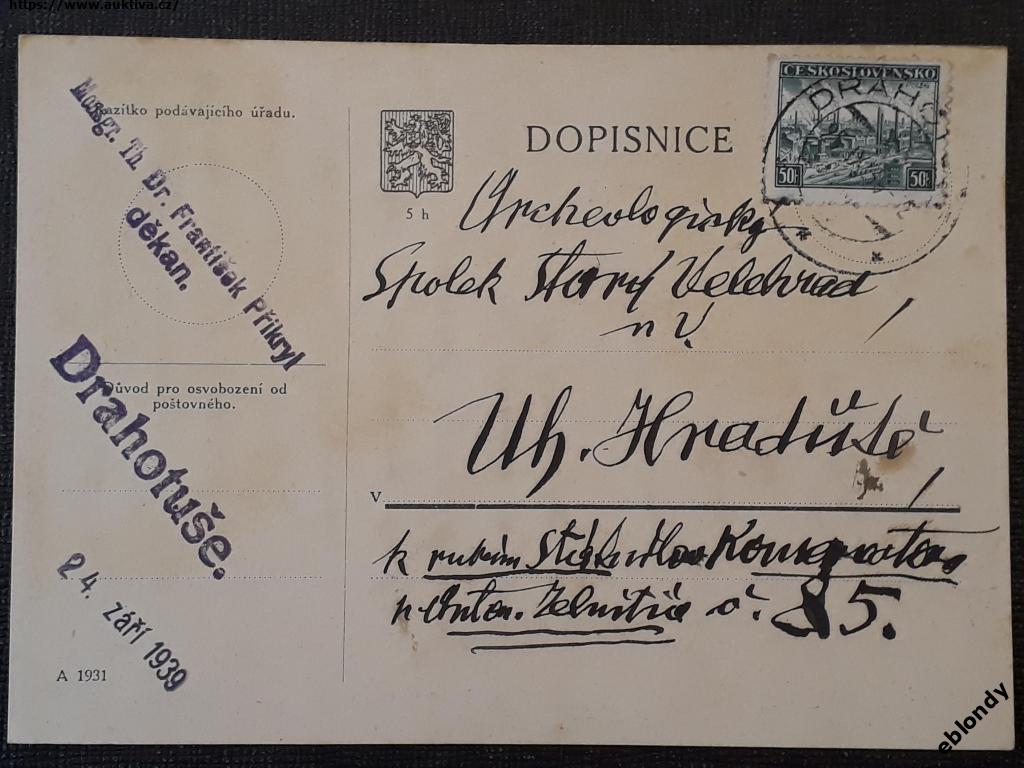 https://www.auktiva.cz/
Razítko podávajícího úřadu.
Monsgr. Th. Dr. František Přikryl
děkan.
Drahotuše.
24. září 1939
Důvod pro osvobození od
poštovného.
A 1931
5 h
DOPISNICE
ČESKOSLOVENSKO
50h 50h
DRAHOTUŠE
Archeologický
Spolek Starý Velehrad,
n V.
Uh. Hradiště,
V
k rukám
Anton. Zelnitia č. 85.
eblondy